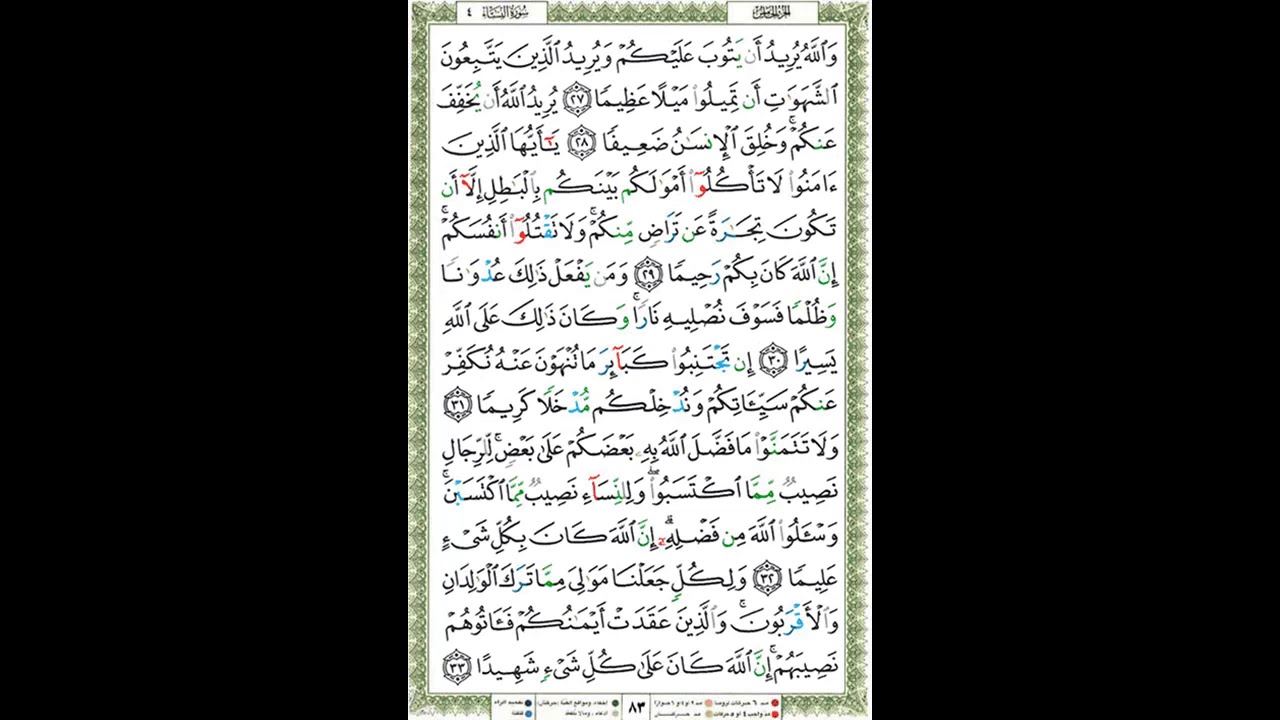 الجزء الخامس
سورة النساء ٤
وَٱللَّهُ يُرِيدُ أَن يَتُوبَ عَلَيْكُمْ وَيُرِيدُ ٱلَّذِينَ يَتَّبِعُونَ
ٱلشَّهَوَٰتِ أَن تَمِيلُوا۟ مَيْلًا عَظِيمًا ٢٧ يُرِيدُ ٱللَّهُ أَن يُخَفِّفَ
عَنكُمْ ۚ وَخُلِقَ ٱلْإِنسَٰنُ ضَعِيفًا ٢٨ يَٰٓأَيُّهَا ٱلَّذِينَ
ءَامَنُوا۟ لَا تَأْكُلُوٓا۟ أَمْوَٰلَكُم بَيْنَكُم بِٱلْبَٰطِلِ إِلَّآ أَن
تَكُونَ تِجَٰرَةً عَن تَرَاضٍ مِّنكُمْ ۚ وَلَا تَقْتُلُوٓا۟ أَنفُسَكُمْ ۚ
إِنَّ ٱللَّهَ كَانَ بِكُمْ رَحِيمًا ٢٩ وَمَن يَفْعَلْ ذَٰلِكَ عُدْوَٰنًا
وَظُلْمًا فَسَوْفَ نُصْلِيهِ نَارًا ۚ وَكَانَ ذَٰلِكَ عَلَى ٱللَّهِ
يَسِيرًا ٣٠ إِن تَجْتَنِبُوا۟ كَبَآئِرَ مَا تُنْهَوْنَ عَنْهُ نُكَفِّرْ
عَنكُمْ سَيِّـَٔاتِكُمْ وَنُدْخِلْكُم مُّدْخَلًا كَرِيمًا ٣١
وَلَا تَتَمَنَّوْا۟ مَا فَضَّلَ ٱللَّهُ بِهِۦ بَعْضَكُمْ عَلَىٰ بَعْضٍ ۚ لِّلرِّجَالِ
نَصِيبٌ مِّمَّا ٱكْتَسَبُوا۟ ۖ وَلِلنِّسَآءِ نَصِيبٌ مِّمَّا ٱكْتَسَبْنَ ۚ
وَسْـَٔلُوا۟ ٱللَّهَ مِن فَضْلِهِۦٓ ۗ إِنَّ ٱللَّهَ كَانَ بِكُلِّ شَىْءٍ
عَلِيمًا ٣٢ وَلِكُلٍّ جَعَلْنَا مَوَٰلِىَ مِمَّا تَرَكَ ٱلْوَٰلِدَانِ
وَٱلْأَقْرَبُونَ ۚ وَٱلَّذِينَ عَقَدَتْ أَيْمَٰنُكُمْ فَـَٔاتُوهُمْ
نَصِيبَهُمْ ۚ إِنَّ ٱللَّهَ كَانَ عَلَىٰ كُلِّ شَىْءٍ شَهِيدًا ٣٣
مد ٦ حركات لزوما مد ٢ أو ٤ أو ٦ جوازا ٨٣ إخفاء، ومواقع الغنة (حركتان) تفخيم الراء
مد واجب ٤ أو ٥ حركات مد حركتان إدغام، وما لا يلفظ قلقلة